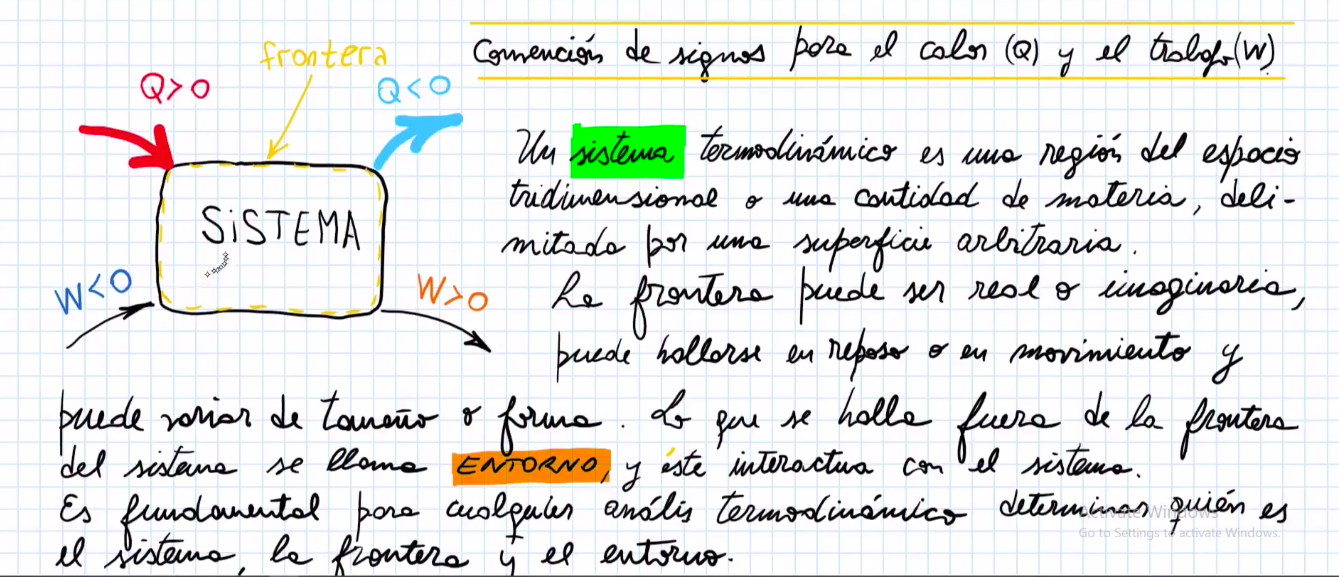 Convención de signos para el calor (Q) y el trabajo (W)
frontera
Q>0
Q<0
SiSTEMA
W<0
W>0
Un sistema termodinámico es una región del espacio
tridimensional o una cantidad de materia, deli-
mitada por una superficie arbitraria.
La frontera puede ser real o imaginaria,
puede hallarse en reposo o en movimiento y
puede variar de tamaño o forma. Lo que se halla fuera de la frontera
del sistema se llama ENTORNO, y éste interactua con el sistema.
Es fundamental para cualquier anális termodinámico determinar quién es
el sistema, la frontera y el entorno.
Activate Windows
Go to Settings to activate Windows.